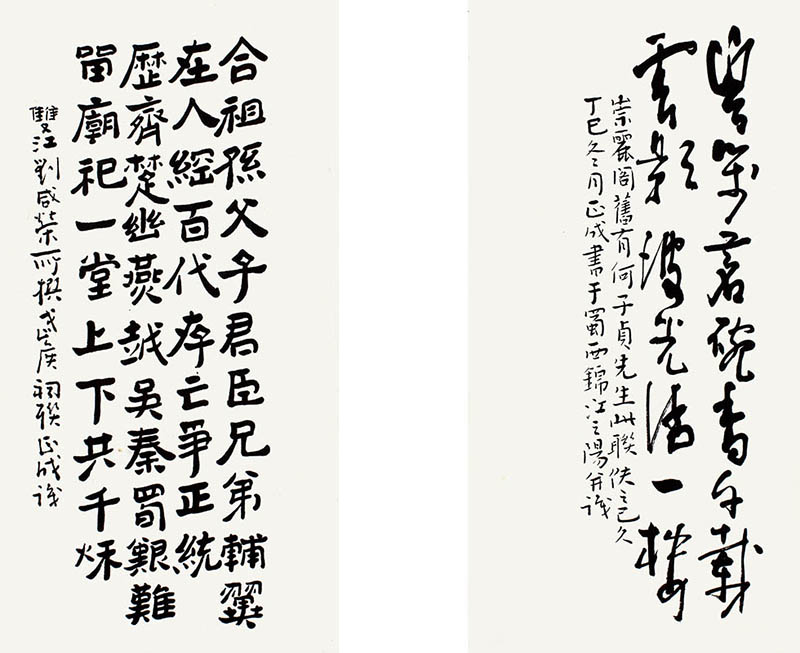 花箋茗碗香千載
雲影波光活一樓
崇麗閣舊有何子貞先生此聯佚之已久
丁巳冬月正成書于蜀西錦江之陽并識
合祖孫父子君臣兄弟輔翼
在人經百代存亡爭正統
歷齊楚幽燕越吳秦蜀艱難
留廟祀一堂上下共千秌
雙江劉咸榮所撰武侯祠聯正成識